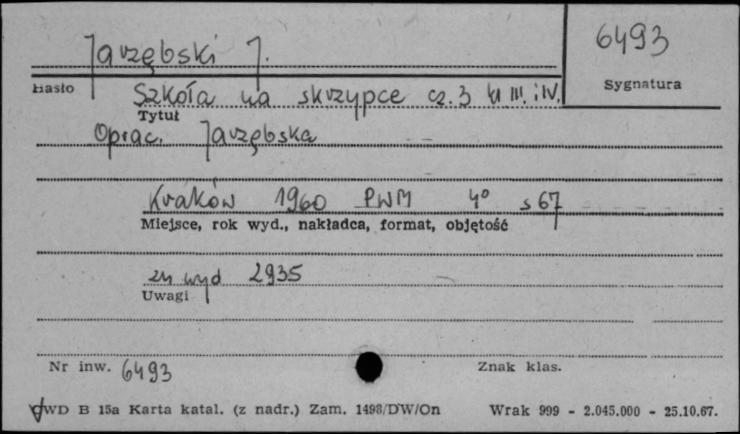 Jarzębski J.
6493
Hasło
Sygnatura
Szkoła na skrzypce cz. 3 kl III. i IV.
Tytuł
Oprac. Jarzębska
Kraków 1960 PWM 4° s 67
Miejsce, rok wyd., nakładca, format, objętość
zn wyd 2935
Uwagi
Nr inw. 6493
Znak klas.
WD B 15a Karta katal. (z nadr.) Zam. 1498/DW/On Wrak 999 - 2.045.000 - 25.10.67.